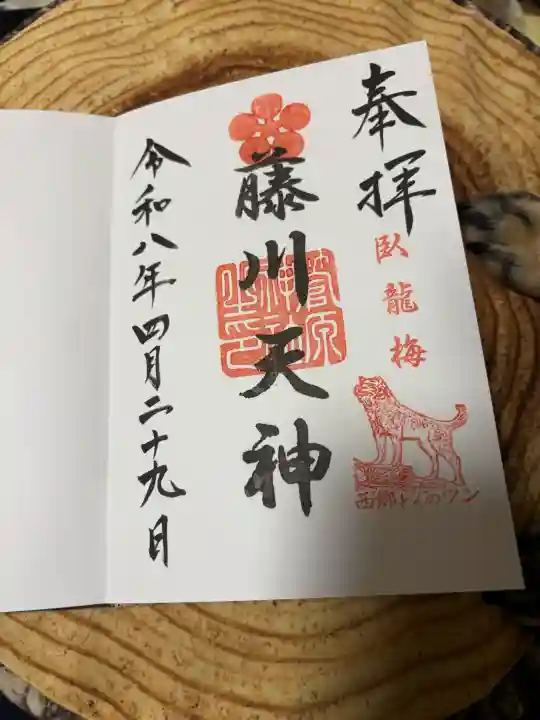 奉拝
臥龍梅
西郷どんのツン
藤川天神
菅原神社
令和八年四月二十九日